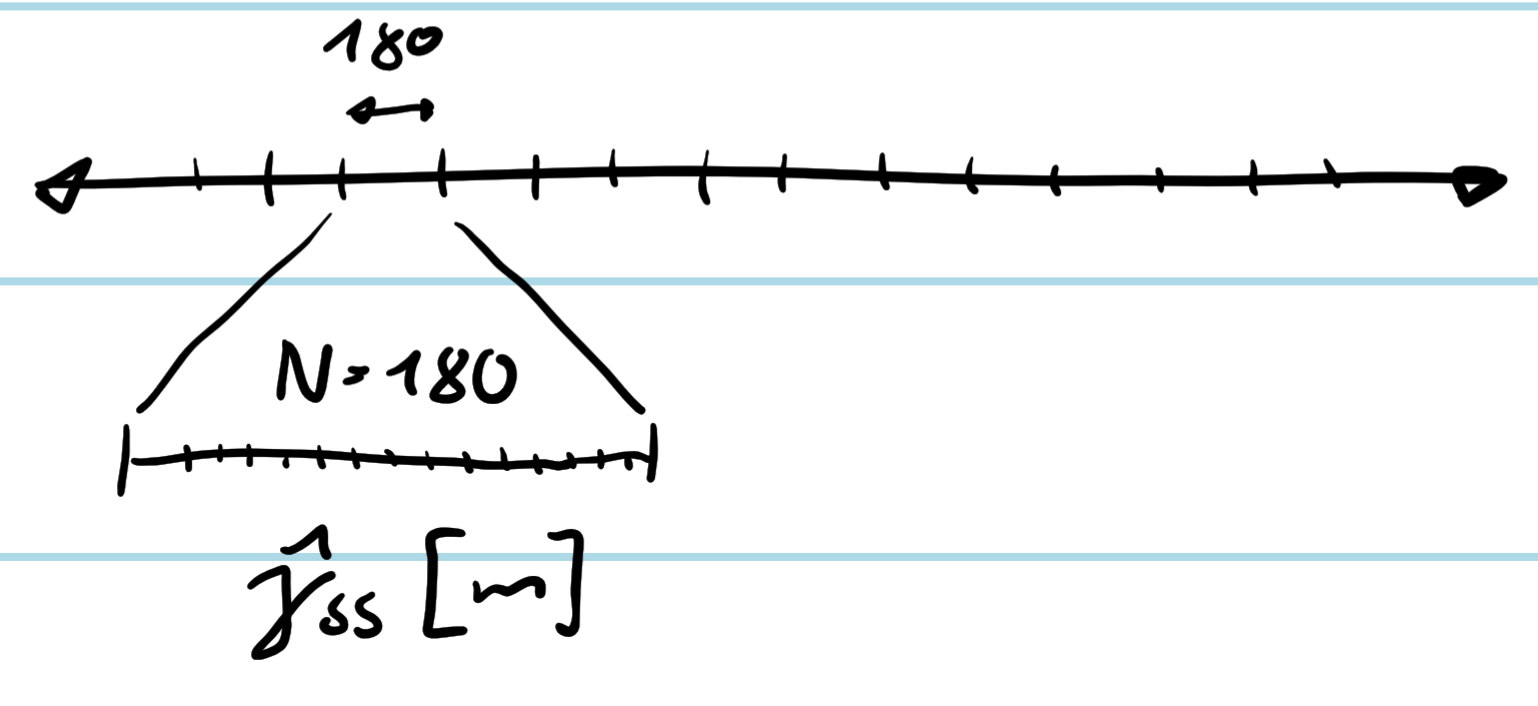 180
N=180
γ̂ss [m]